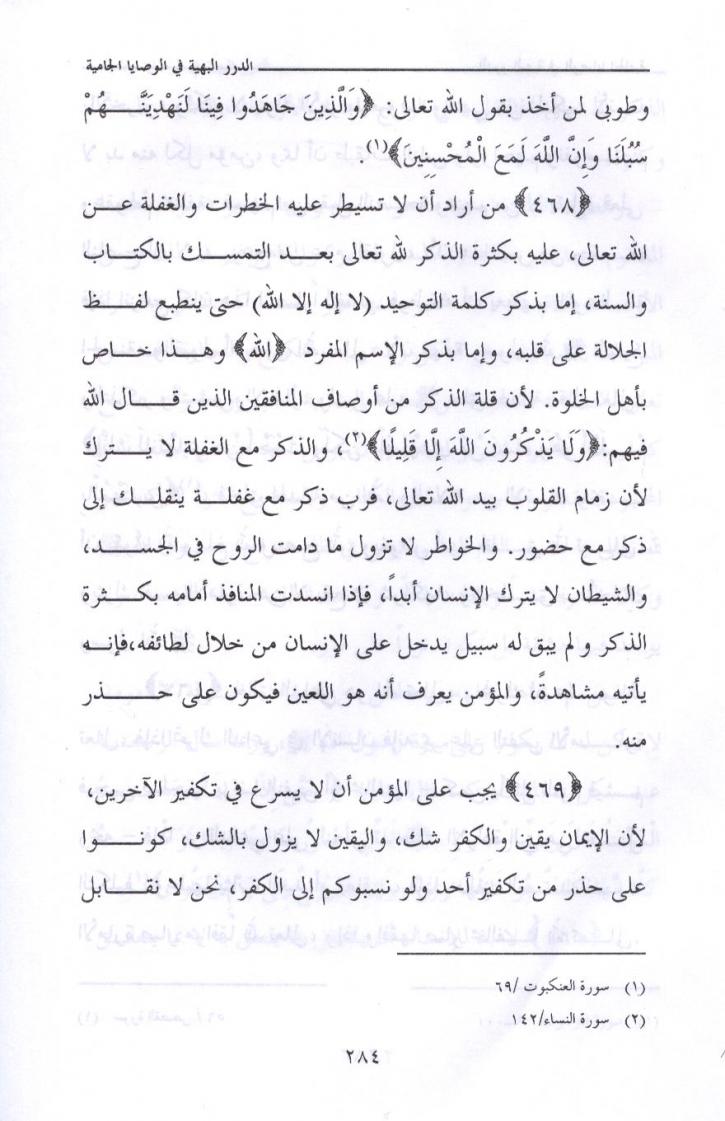 الدرر البهية في الوصايا الجامية
وطوبى لمن أخذ بقول الله تعالى: ﴿وَالَّذِينَ جَاهَدُوا فِينَا لَنَهْدِيَنَّهُمْ
سُبُلَنَا وَإِنَّ اللَّهَ لَمَعَ الْمُحْسِنِينَ﴾(١).
﴿٤٦٨﴾ من أراد أن لا تسيطر عليه الخطرات والغفلة عن
الله تعالى، عليه بكثرة الذكر لله تعالى بعد التمسك بالكتاب
والسنة، إما بذكر كلمة التوحيد (لا إله إلا الله) حتى ينطبع لفظ
الجلالة على قلبه، وإما بذكر الإسم المفرد ﴿الله﴾ وهذا خاص
بأهل الخلوة. لأن قلة الذكر من أوصاف المنافقين الذين قال الله
فيهم:﴿وَلَا يَذْكُرُونَ اللَّهَ إِلَّا قَلِيلًا﴾(٢)، والذكر مع الغفلة لا يترك
لأن زمام القلوب بيد الله تعالى، فرب ذكر مع غفلة ينقلك إلى
ذكر مع حضور. والخواطر لا تزول ما دامت الروح في الجسد،
والشيطان لا يترك الإنسان أبداً، فإذا انسدت المنافذ أمامه بكثرة
الذكر ولم يبق له سبيل يدخل على الإنسان من خلال لطائفه،فإنه
يأتيه مشاهدةً، والمؤمن يعرف أنه هو اللعين فيكون على حذر
منه.
﴿٤٦٩﴾ يجب على المؤمن أن لا يسرع في تكفير الآخرين،
لأن الإيمان يقين والكفر شك، واليقين لا يزول بالشك، كونوا
على حذر من تكفير أحد ولو نسبوكم إلى الكفر، نحن لا نقابل
(١) سورة العنكبوت /٦٩
(٢) سورة النساء/١٤٢
٢٨٤